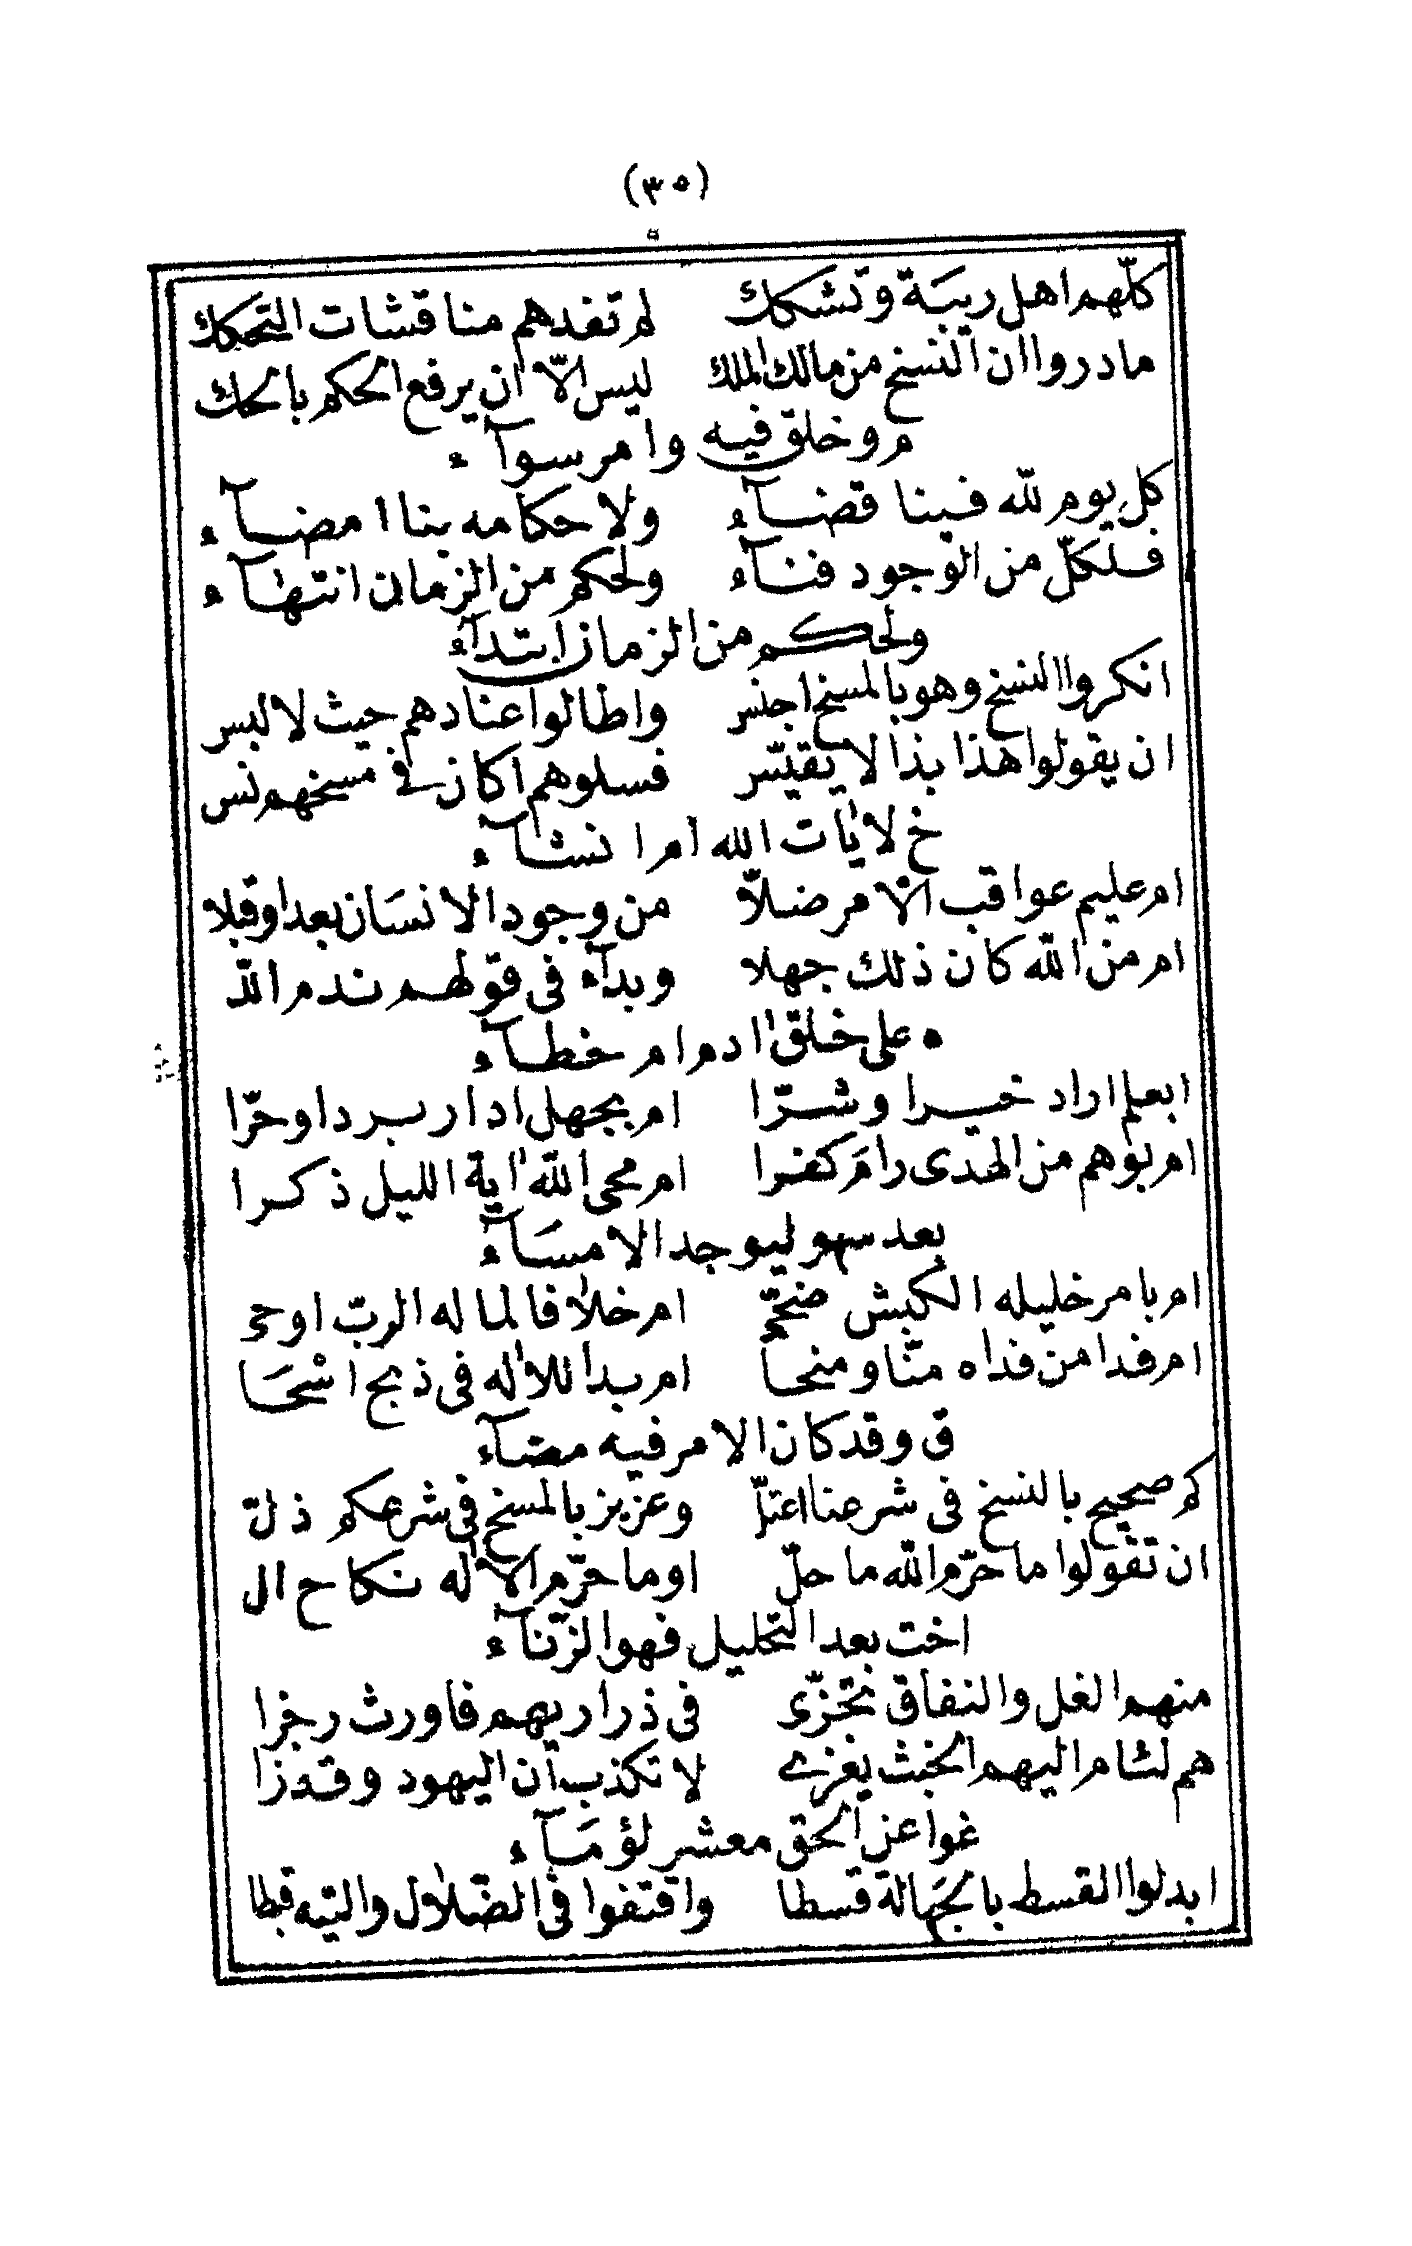 (٣٥)
كلّهم اهل ريبَة وتشكك لم تفدهم مناقشات التحكك
مادروا ان النسخ من مالك الملك ليس الّا ان يرفع الحكم بالحك
م وخلق فيه وامر سوآء
كل يوم لله فينا قضآء ولاحكامه بنا امضآء
فلكلّ من الوجود فنآء ولحكم من الزمان انتهآء
ولحكم من الزمان ابتدآء
انكروا النسخ وهو بالمسخ اجنس واطالوا عنادهم حيث لا لبس
ان يقولوا هذا بذا لا يقيّس فسلوهم اكان في مسخهم نس
خ لايات الله ام انشآء
ام عليم عواقب الامر ضلّا من وجود الانسَان بعدا وقبلا
ام من الله كان ذلك جهلا وبدآء فى قولهم ندم اللّ
ه على خلق ادم ام خطآء
ابعلم اراد خيرا وشرّا ام بجهل ادار بردا وحرّا
ام بوهم من الهدى رامَ كفرا ام محى الله اية الليل ذكرا
بعد سهو ليوجد الامسَآء
ام بامر خليله الكبش ضحّى ام خلافا لما له الربّ اوحى
ام فدا من فداه منّا ومنحا ام بدا للاله فى ذبح اسْحَا
ق وقد كان الامر فيه مضآء
كم صحيح بالنسخ فى شرعنا اعتلّ وعزيز بالمسخ فى شرعكم ذلّ
ان تقولوا ما حرّم الله ما حلّ اوما حرّم الاله نكاح ال
اخت بعد التحليل فهو الزنآء
منهم الغل والنفاق تجزّى فى ذراريهم فاورث رجزا
هم لئام اليهم الخبث يغزى لا تكذب ان اليهود وقد زا
غوا عن الحق معشر لؤمَآء
ابدلوا القسط بالجَهالة قسطا واقتفوا فى الضّلال والتيه قبطا